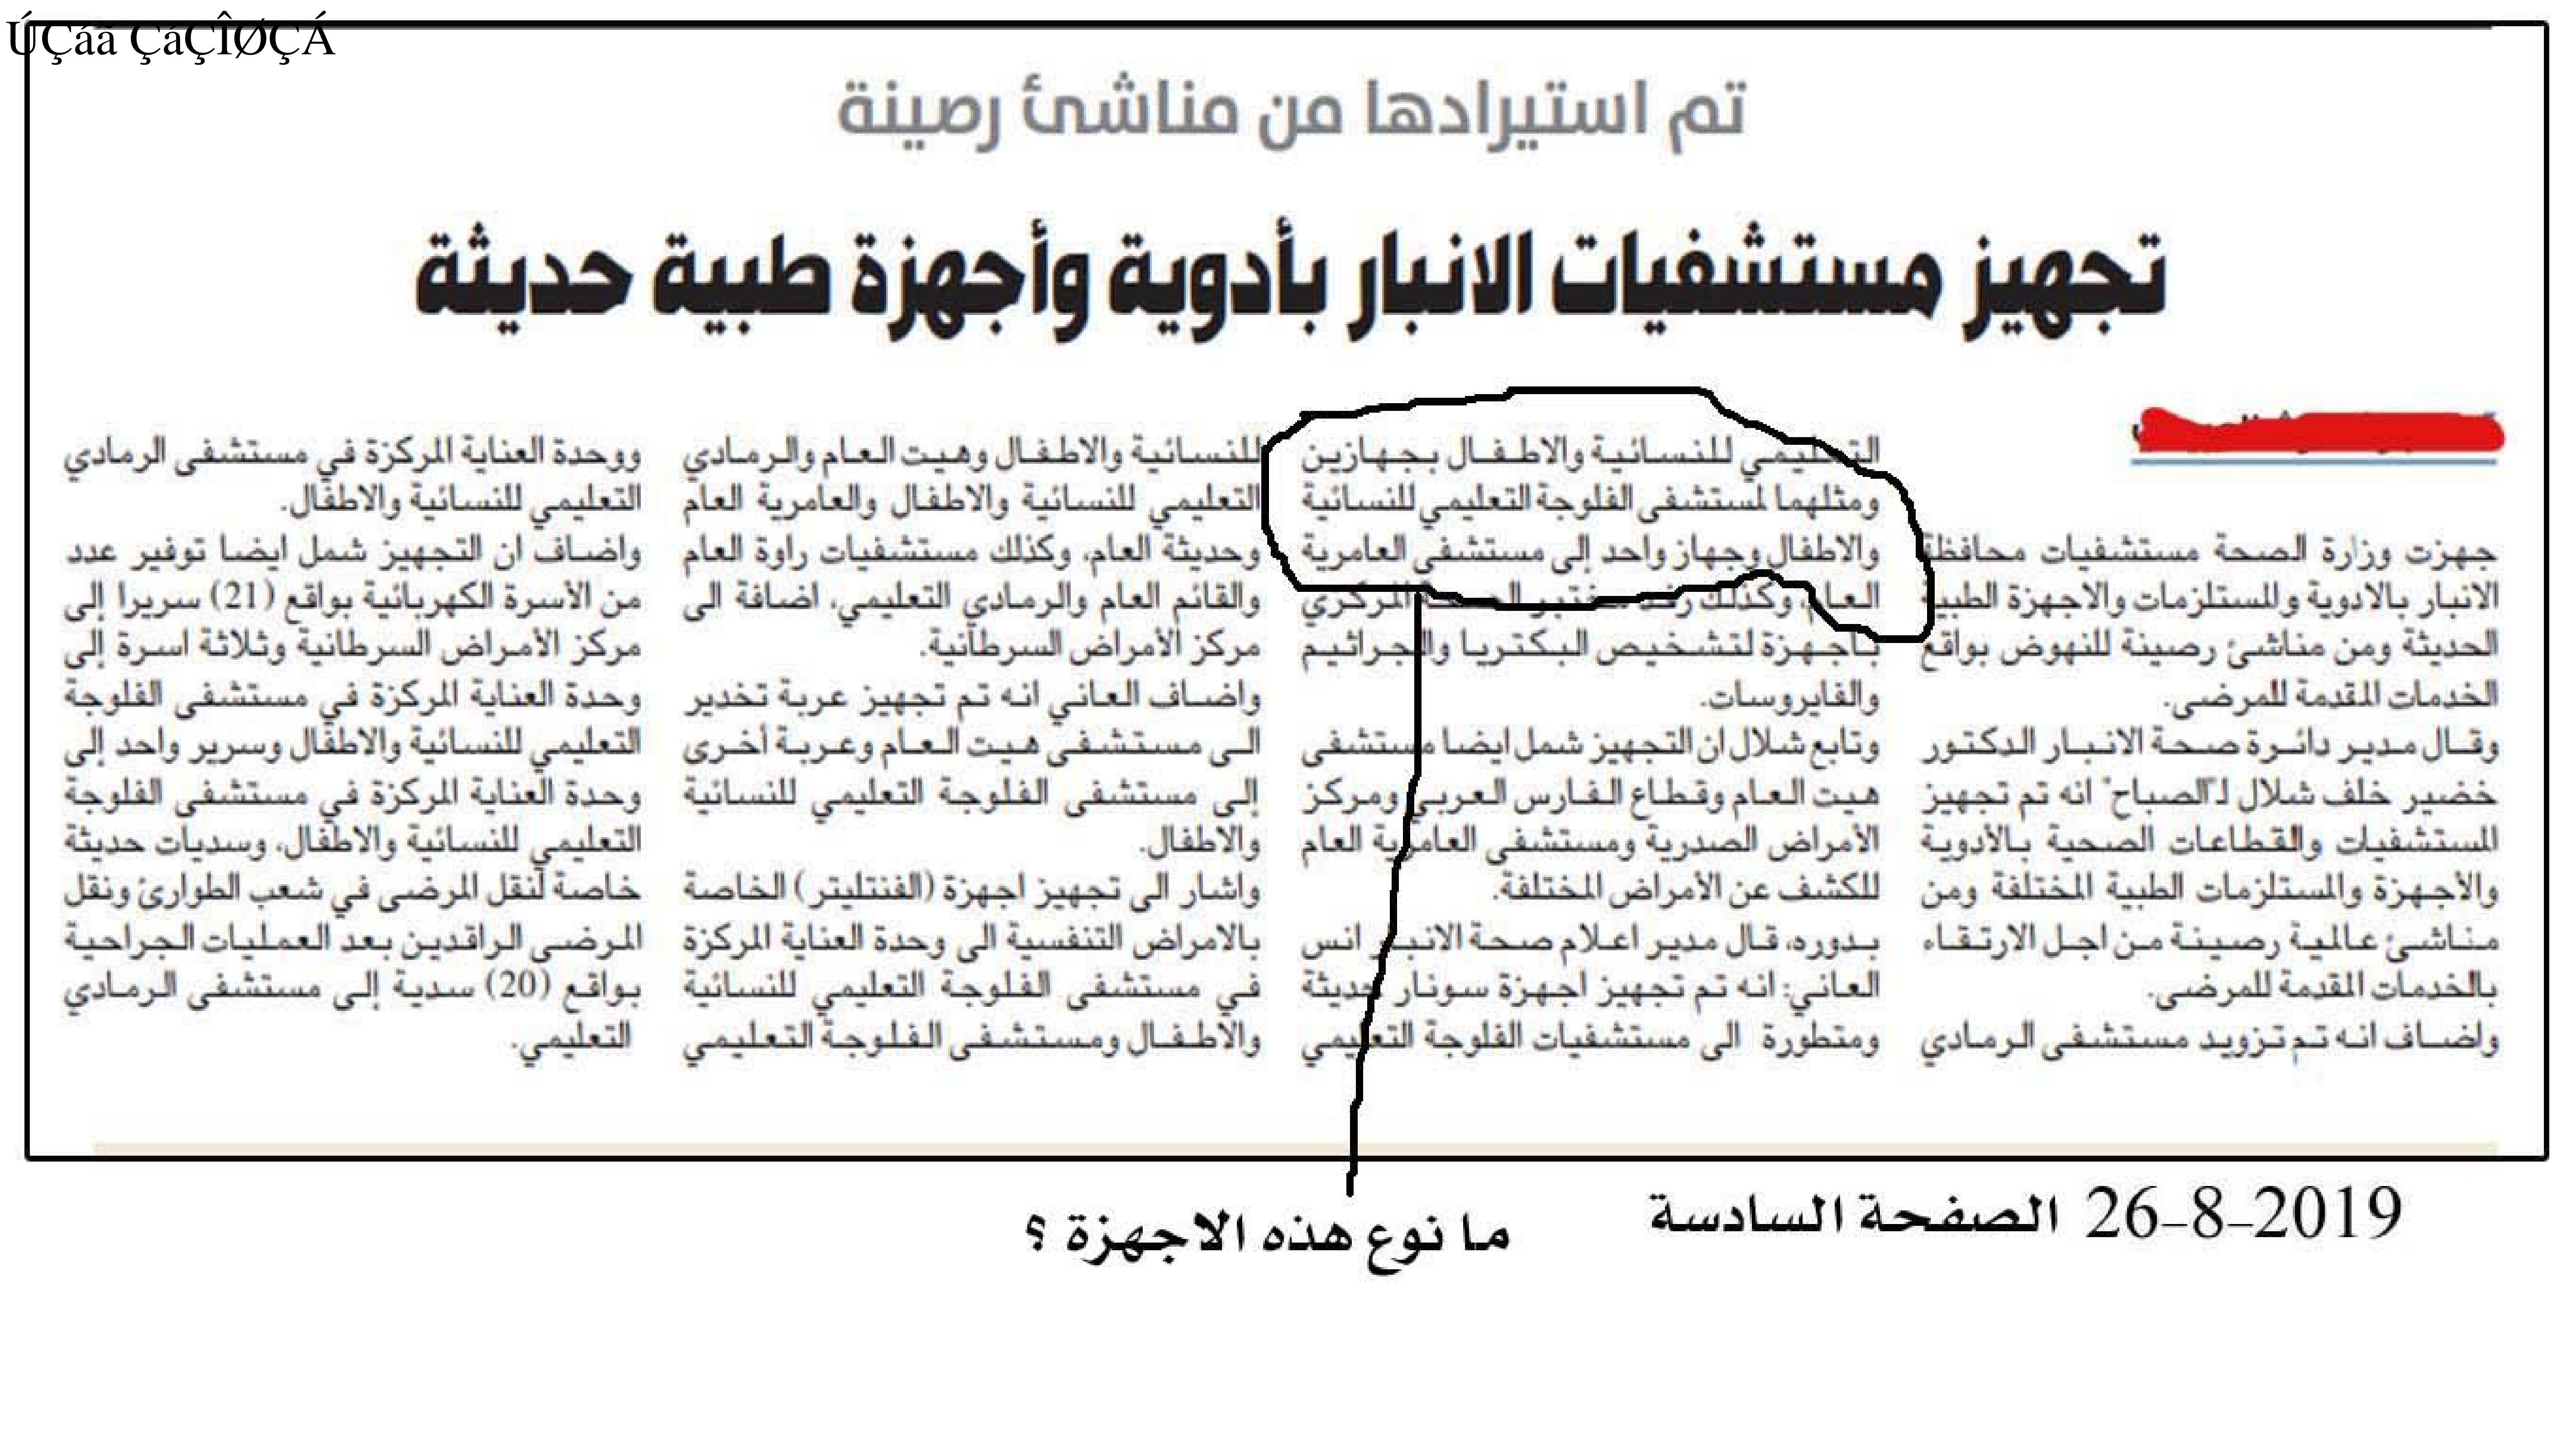 ÚÇáã ÇáÇÎØÇÁ
تم استيرادها من مناشئ رصينة
تجهيز مستشفيات الانبار بأدوية وأجهزة طبية حديثة
جهزت وزارة الصحة مستشفيات محافظة
الانبار بالادوية والمستلزمات والاجهزة الطبية
الحديثة ومن مناشئ رصينة للنهوض بواقع
الخدمات المقدمة للمرضى.
وقال مدير دائرة صحة الانبار الدكتور
خضير خلف شلال لـ"الصباح" انه تم تجهيز
المستشفيات والقطاعات الصحية بالأدوية
والأجهزة والمستلزمات الطبية المختلفة ومن
مناشئ عالمية رصينة من اجل الارتقاء
بالخدمات المقدمة للمرضى.
واضاف انه تم تزويد مستشفى الرمادي
التعليمي للنسائية والاطفال بجهازين
ومثلهما لمستشفى الفلوجة التعليمي للنسائية
والاطفال وجهاز واحد إلى مستشفى العامرية
العام، وكذلك رفد مختبر الصحة المركزي
بأجهزة لتشخيص البكتريا والجراثيم
والفايروسات.
وتابع شلال ان التجهيز شمل ايضا مستشفى
هيت العام وقطاع الفارس العربي ومركز
الأمراض الصدرية ومستشفى العامرية العام
للكشف عن الأمراض المختلفة.
بدوره، قال مدير اعلام صحة الانبار انس
العاني: انه تم تجهيز اجهزة سونار حديثة
ومتطورة الى مستشفيات الفلوجة التعليمي
للنسائية والاطفال وهيت العام والرمادي
التعليمي للنسائية والاطفال والعامرية العام
وحديثة العام، وكذلك مستشفيات راوة العام
والقائم العام والرمادي التعليمي، اضافة الى
مركز الأمراض السرطانية.
واضاف العاني انه تم تجهيز عربة تخدير
الى مستشفى هيت العام وعربة أخرى
إلى مستشفى الفلوجة التعليمي للنسائية
والاطفال.
واشار الى تجهيز اجهزة (الفنتليتر) الخاصة
بالامراض التنفسية الى وحدة العناية المركزة
في مستشفى الفلوجة التعليمي للنسائية
والاطفال ومستشفى الفلوجة التعليمي
ووحدة العناية المركزة في مستشفى الرمادي
التعليمي للنسائية والاطفال.
واضاف ان التجهيز شمل ايضا توفير عدد
من الأسرة الكهربائية بواقع (21) سريرا إلى
مركز الأمراض السرطانية وثلاثة اسرة إلى
وحدة العناية المركزة في مستشفى الفلوجة
التعليمي للنسائية والاطفال وسرير واحد إلى
وحدة العناية المركزة في مستشفى الفلوجة
التعليمي للنسائية والاطفال، وسديات حديثة
خاصة لنقل المرضى في شعب الطوارئ ونقل
المرضى الراقدين بعد العمليات الجراحية
بواقع (20) سدية إلى مستشفى الرمادي
التعليمي.
26-8-2019 الصفحة السادسة
ما نوع هذه الاجهزة ؟